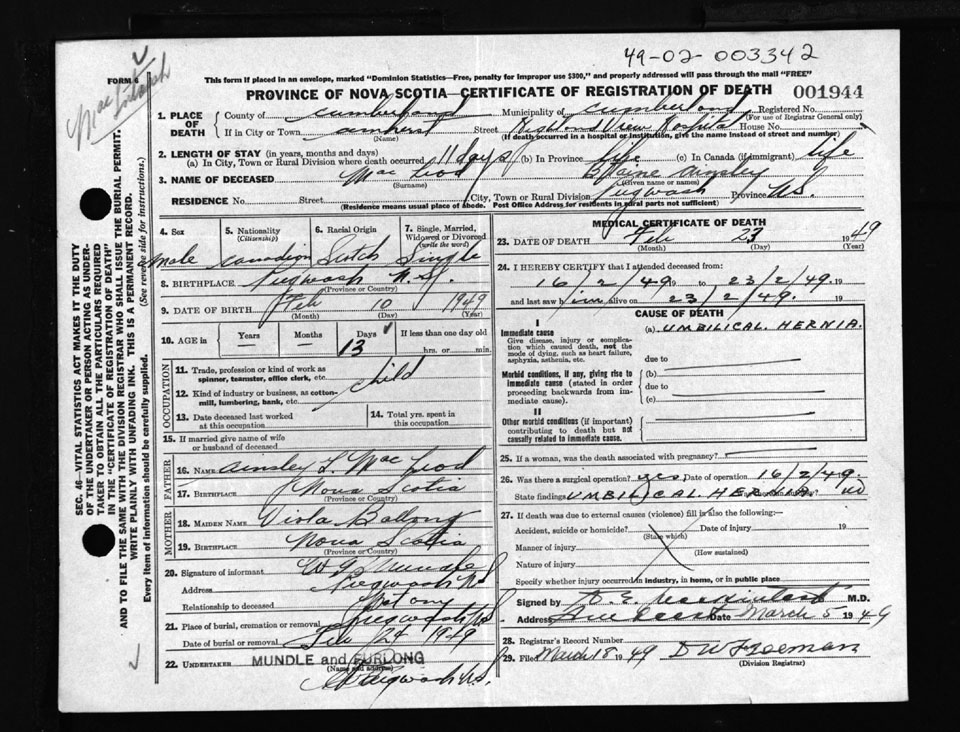 49-02-003342
FORM 6
Mac
This form if placed in an envelope, marked "Dominion Statistics—Free, penalty for improper use $300," and properly addressed will pass through the mail "FREE"
PROVINCE OF NOVA SCOTIA—CERTIFICATE OF REGISTRATION OF DEATH 001944
1. PLACE OF DEATH County of Cumberland Municipality of Cumberland Registered No.
(For use of Registrar General only)
If in City or Town Amherst Street Highland View Hospital House No.
(Name) (If death occurred in a hospital or institution, give the name instead of street and number)
2. LENGTH OF STAY (in years, months and days)
(a) In City, Town or Rural Division where death occurred 11 days (b) In Province life (c) In Canada (if immigrant) life
3. NAME OF DECEASED Mac Leod Blaine Ainsley
(Surname) (Given name or names)
RESIDENCE No. Street City, Town or Rural Division Pugwash Province N.S.
(Residence means usual place of abode. Post Office Address for residents in rural parts not sufficient)
4. Sex 5. Nationality (Citizenship) 6. Racial Origin 7. Single, Married, Widowed or Divorced (write the word)
Male Canadian Scotch Single
8. BIRTHPLACE Pugwash N.S.
(Province or Country)
9. DATE OF BIRTH Feb 10 1949
(Month) (Day) (Year)
10. AGE in Years Months Days 13 If less than one day old hrs. or min.
OCCUPATION
11. Trade, profession or kind of work as spinner, teamster, office clerk, etc. child
12. Kind of industry or business, as cotton-mill, lumbering, bank, etc.
13. Date deceased last worked at this occupation
14. Total yrs. spent in this occupation
15. If married give name of wife or husband of deceased
FATHER
16. NAME Ainsley L. Mac Leod
17. BIRTHPLACE Nova Scotia
(Province or Country)
MOTHER
18. MAIDEN NAME Viola
19. BIRTHPLACE Nova Scotia
(Province or Country)
20. Signature of informant Mundle
Address Pugwash NS
Relationship to deceased
21. Place of burial, cremation or removal Pugwash N.S.
Date of burial or removal Feb 24 1949
22. UNDERTAKER MUNDLE and FURLONG
(Name and Address)
Pugwash N.S.
MEDICAL CERTIFICATE OF DEATH
23. DATE OF DEATH Feb 23 1949
(Month) (Day) (Year)
24. I HEREBY CERTIFY that I attended deceased from
16/2/49 19 to 23/2/49. 19
and last saw him alive on 23/2/49. 19
CAUSE OF DEATH
I
Immediate cause (a) UMBILICAL HERNIA.
Give disease, injury or complication which caused death, not the mode of dying, such as heart failure, asphyxia, asthenia, etc.
due to
Morbid conditions, if any, giving rise to immediate cause (stated in order proceeding backwards from immediate cause). (b)
due to
(c)
II
Other morbid conditions (if important) contributing to death but not causally related to immediate cause.
25. If a woman, was the death associated with pregnancy?
26. Was there a surgical operation? yes Date of operation 16/2/49.
State findings UMBILICAL HERNIA no
27. If death was due to external causes (violence) fill in also the following:—
Accident, suicide or homicide? Date of injury 19
(State which)
Manner of injury
(How sustained)
Nature of injury
Specify whether injury occurred in industry, in home, or in public place
Signed by M.D.
Date March 5 1949
28. Registrar's Record Number
29. Filed March 18 1949 D W Freeman
(Division Registrar)
SEC. 46—VITAL STATISTICS ACT MAKES IT THE DUTY
OF THE UNDERTAKER OR PERSON ACTING AS UNDERTAKER TO OBTAIN ALL THE PARTICULARS REQUIRED
IN THE "CERTIFICATE OF REGISTRATION OF DEATH"
AND TO FILE THE SAME WITH THE DIVISION REGISTRAR WHO SHALL ISSUE THE BURIAL PERMIT.
WRITE PLAINLY WITH UNFADING INK. THIS IS A PERMANENT RECORD.
Every item of information should be carefully supplied. (See reverse side for instructions.)